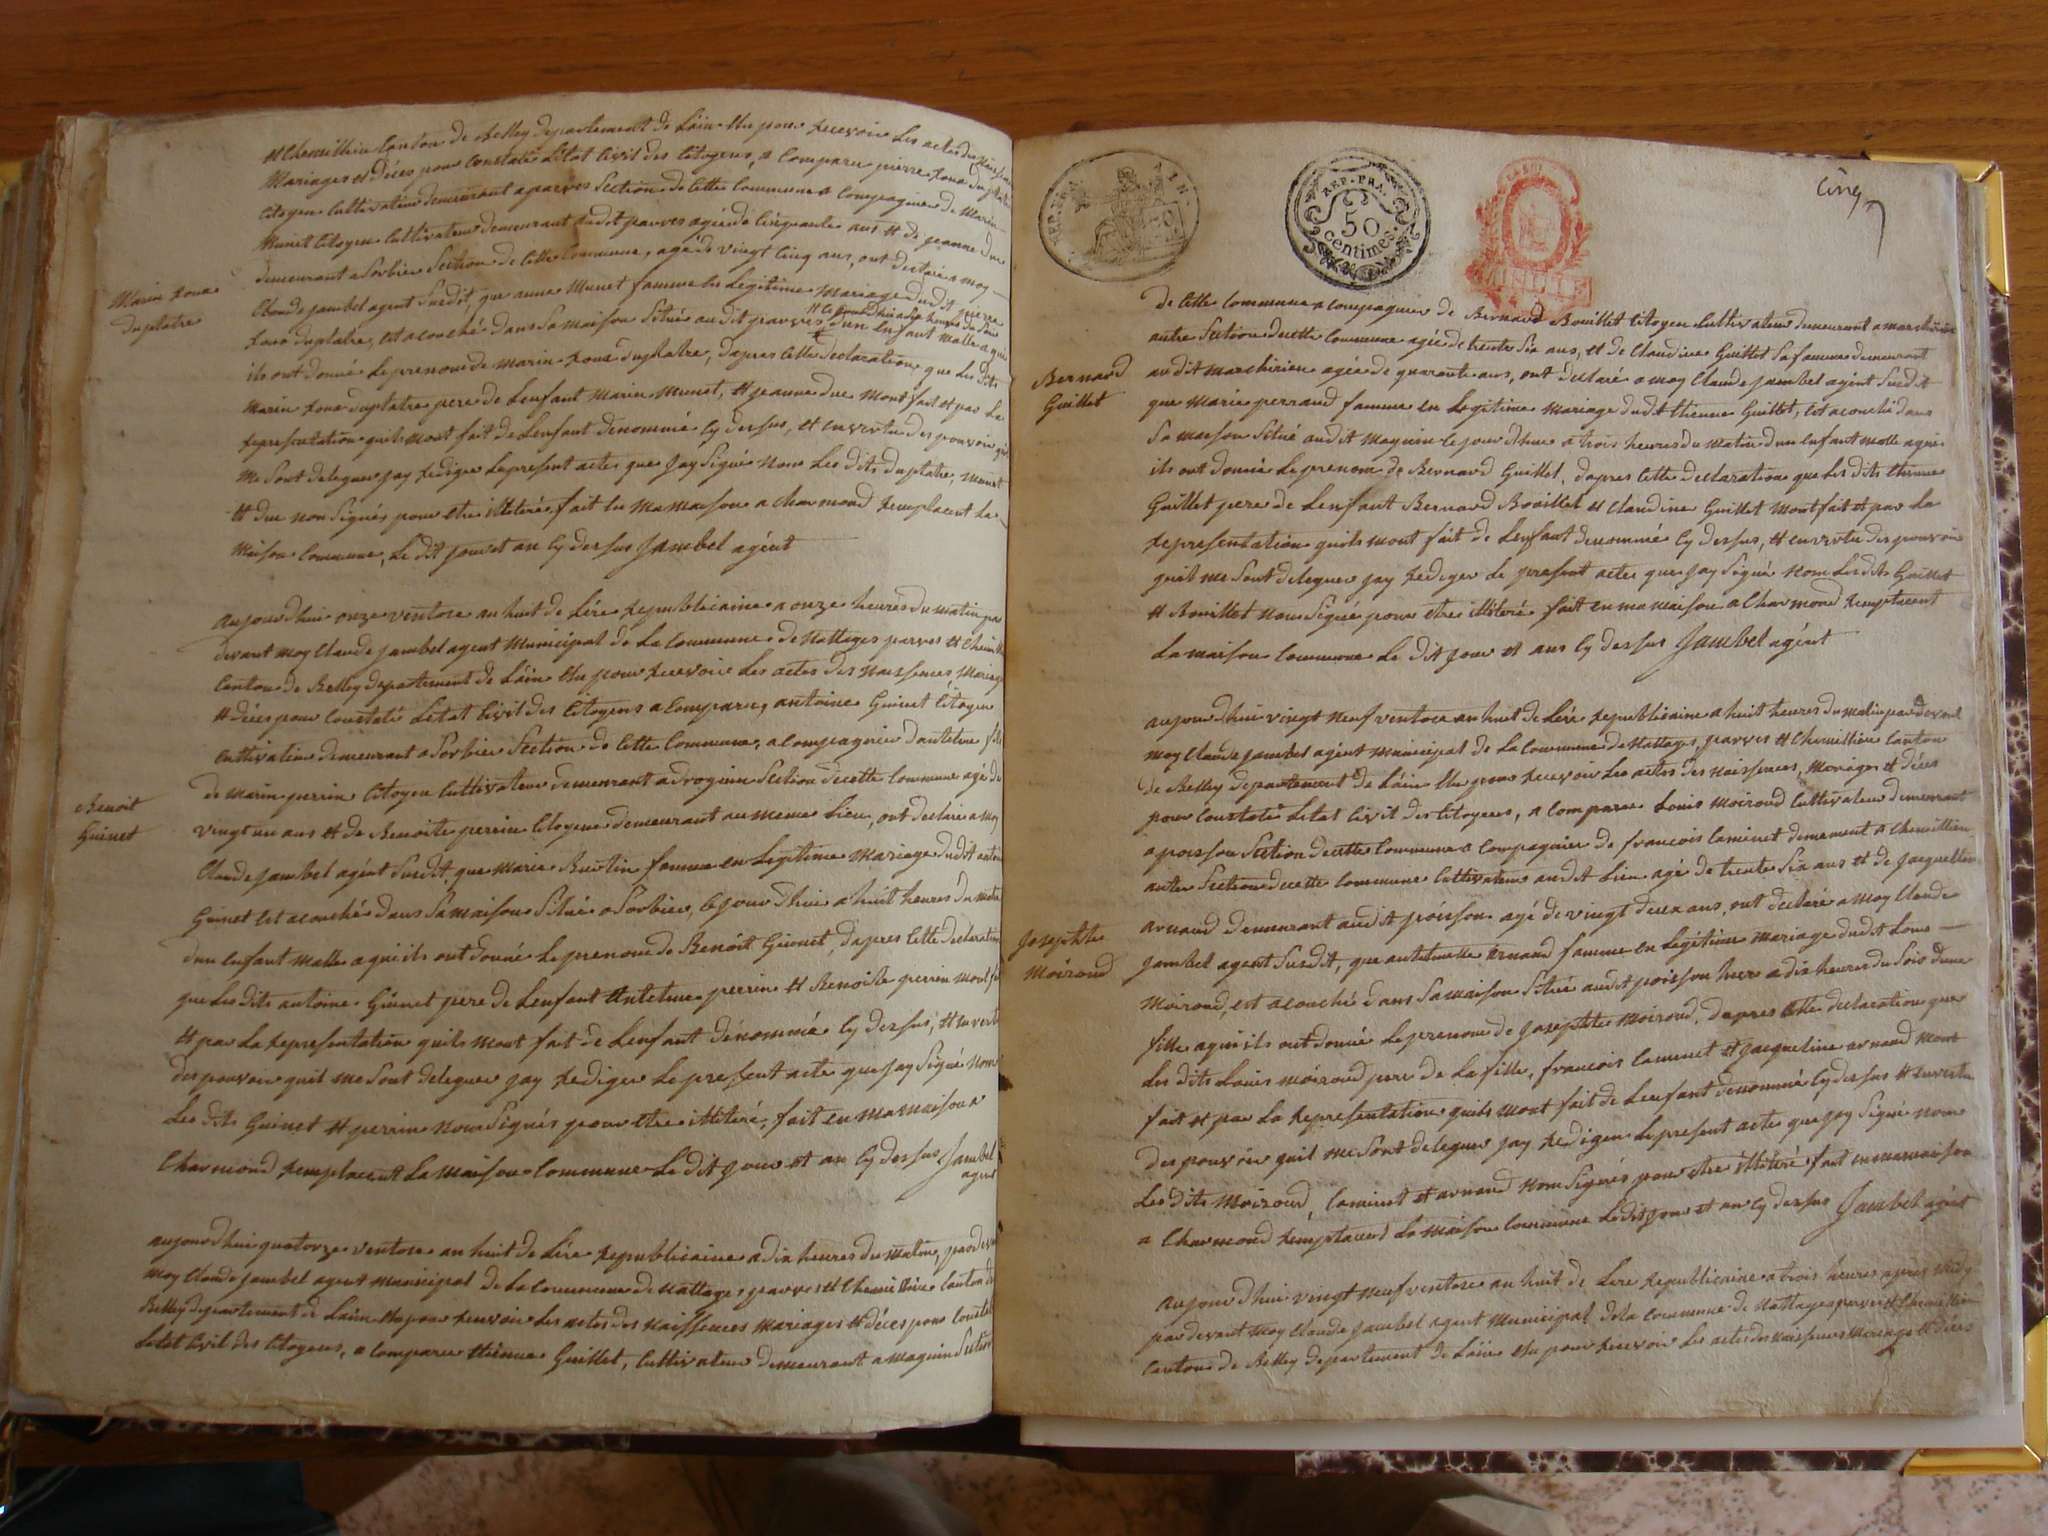 et Chemillieu Canton de Belley departement de Lain Elu pour recevoir Les actes de Naissances
Mariages et Déces pour constaté Létat Civil des Citoyens, a Comparu pierre roux duplatre
Citoyen Cultivateur demeurant a parves Section de Cette Commune a Compagnier de Marin
Munet Citoyen Cultivateur demeurant audit parves agée de Cinquante ans et de jeanne duc
demeurant a Sorbier Section de Cette Commune, agé de vingt Cinq ans, ont declaré a moy
Claude jambel agent Susdit, que anne Munet famme en Legitime Mariage dudit pierre
roux duplatre, est acouché dans Sa maison Situé audit parves dun enfant malle a qui
ils ont donné Le prenom de marin roux duplatre, dapres Cette declaration que Les dits
Marin roux duplatre pere de Lenfant Marin Munet, et jeanne duc Mont fait et par La
representation quils Mont fait de Lenfant denommé Cy dessus, et en vertu des pouvoir quil
Me Sont deleguer jay rediger Le present actes que jay Signé non Les dits duplatre, Munet
et duc non Signés pour etre illiteré, fait en Ma maison a charmond remplacent La
Maison Commune, Le dit jour et an Cy dessus Jambel agént
Marin roux
duplatre
aujourdhui onze ventose an huit de Lére republicaine a onze heures du matin par
devant moy Claude jambel agent Municipal de La Commune de Nattages parves et Chemillieu
Canton de Belley departement de Lain Elu pour recevoir Les actes des Naissences, Mariages
et déces pour Constaté Létat Civil des Citoyens a comparu, antoine Guinet Citoyen
Cultivateur demeurant a Sorbier Section de Cette Commune, a Compagnier dantelme fils
de Marin perrin Citoyen Cultivateur demeurant a drognin Section de cette Commune agé de
vingt un ans et de Benoite perrin Citoyene demeurant au meme Lieu, ont declaré a moy
Claude jambel agént Susdit, que Marie Burtin famme en Legitime Mariage dudit antoine
Guinet est acouché dans Sa maison Situé a Sorbier, Cejourdhui a huit heures du matin
dun enfant Malle a qui ils ont donné Le prenom de Benoit Guinet, dapres Cette declaration
que Les dits antoine Guinet pere de Lenfant antelme perrin et Benoite perrin Mont fait
et par La representation quils Mont fait de Lenfant dénommé Cy dessus, et en vertu
des pouvoir quil me Sont deleguer jay rediger Le present acte que jay Signé non
Les dits Guinet et perrin non Signés pour etre illiteré, fait en Ma maison a
Charmond remplacent La Maison Commune Le dit jour et an Cy dessus Jambel
agent
Benoit
Guinet
aujourdhui quatorze ventose an huit de Lére republicaine a dix heures du matin, pardevant
moy Claude jambel agent municipal de La Commune de Nattages parves et Chemillieu Canton de
Belley departement de Lain Elu pour recevoir Les actes des Naissences Mariages et déces pour Constaté
Létat Civil des Citoyens, a Comparu Etienne Guillet, Cultivateur demeurant a Magnin Section
REP. FRA.
AIN
REP. FRA.
50
centimes.
Cinq
de Cette Commune a Compagnier de Bernard Bouillet Citoyen Cultivateur demeurant a marchirieu
autre Section decette Commune agé de trente Six ans, et de Claudine Guillet Sa famme demeurant
audit marchirieu agée de quarente ans, ont declaré a moy Claude jambel agént Susdit
que Marie perraud famme en Legitime Mariage dudit Etienne Guillet, est acouché dans
Sa maison Situé audit Magnin Ce jourdhui a trois heures du Matin dun enfant Malle a qui
ils ont donné Le prenom de Bernard Guillet, dapres Cette declaration que Les dits Etienne
Guillet pere de Lenfant Bernard Bouillet et Claudine Guillet Mont fait et par La
representation quils mont fait de Lenfant denommé Cy dessus, et en vertu des pouvoir
quil me Sont deleguer jay rediger Le present actes que jay Signé non Les dits Guillet
et Bouillet non Signés pour etre illiteré fait en ma maison a Charmond remplacent
La maison Commune Le dit jour et ans Cy dessus Jambel agént
Bernard
Guillet
aujourdhui vingt neuf ventose an huit de Lére republicaine a huit heures du matin pardevant
moy Claude jambel agént municipal de La Commune de Nattages, parves et Chemillieu Canton
de Belley departement de Lain Elu pour recevoir Les actes des Naissences, Mariages et déces
pour Constaté Létat Civil des Citoyens, a Comparu Louis Moiroud Cultivateur demeurant
a poisson Section de cette Commune a Compagnier de francois Caminet demeurant a Chemillieu
autre Section de cette Commune Cultivateur audit Lieu agé de trente Six ans et de jacqueline
arnaud demeurant audit poisson agé de vingt deux ans, ont declaré a moy Claude
jambel agent Susdit, que antelmette arnaud famme en Legitime Mariage dudit Louis
Moiroud, est acouché dans Sa maison Situé audit poisson hiere a dix heures du Soir dune
fille a qui ils ont donné Le prenom de Josephte Moiroud, dapres Cette declaration que
Les dits Louis Moiroud pere de La fille, francois Caminet et jacqueline arnaud Mont
fait et par La representation quils Mont fait de Lenfant denommé Cy dessus et en vertu
des pouvoir quil me Sont deleguer jay rediger Le present acte que jay Signé non
Les dits Moiroud, Caminet et arnaud non Signés pour etre illiteré, fait en ma maison
a Charmond remplacent La maison Commune Le dit jour et an Cy dessus Jambel agént
Josephte
Moiroud
aujourdhui vingt neuf ventose an huit de Lere republicaine a trois heures apres midy
par devant moy Claude jambel agent Municipal de La Commune de Nattages parves et Chemillieu
Canton de Belley departement de Lain Elu pour recevoir Les actes des Naissences Mariages et déces